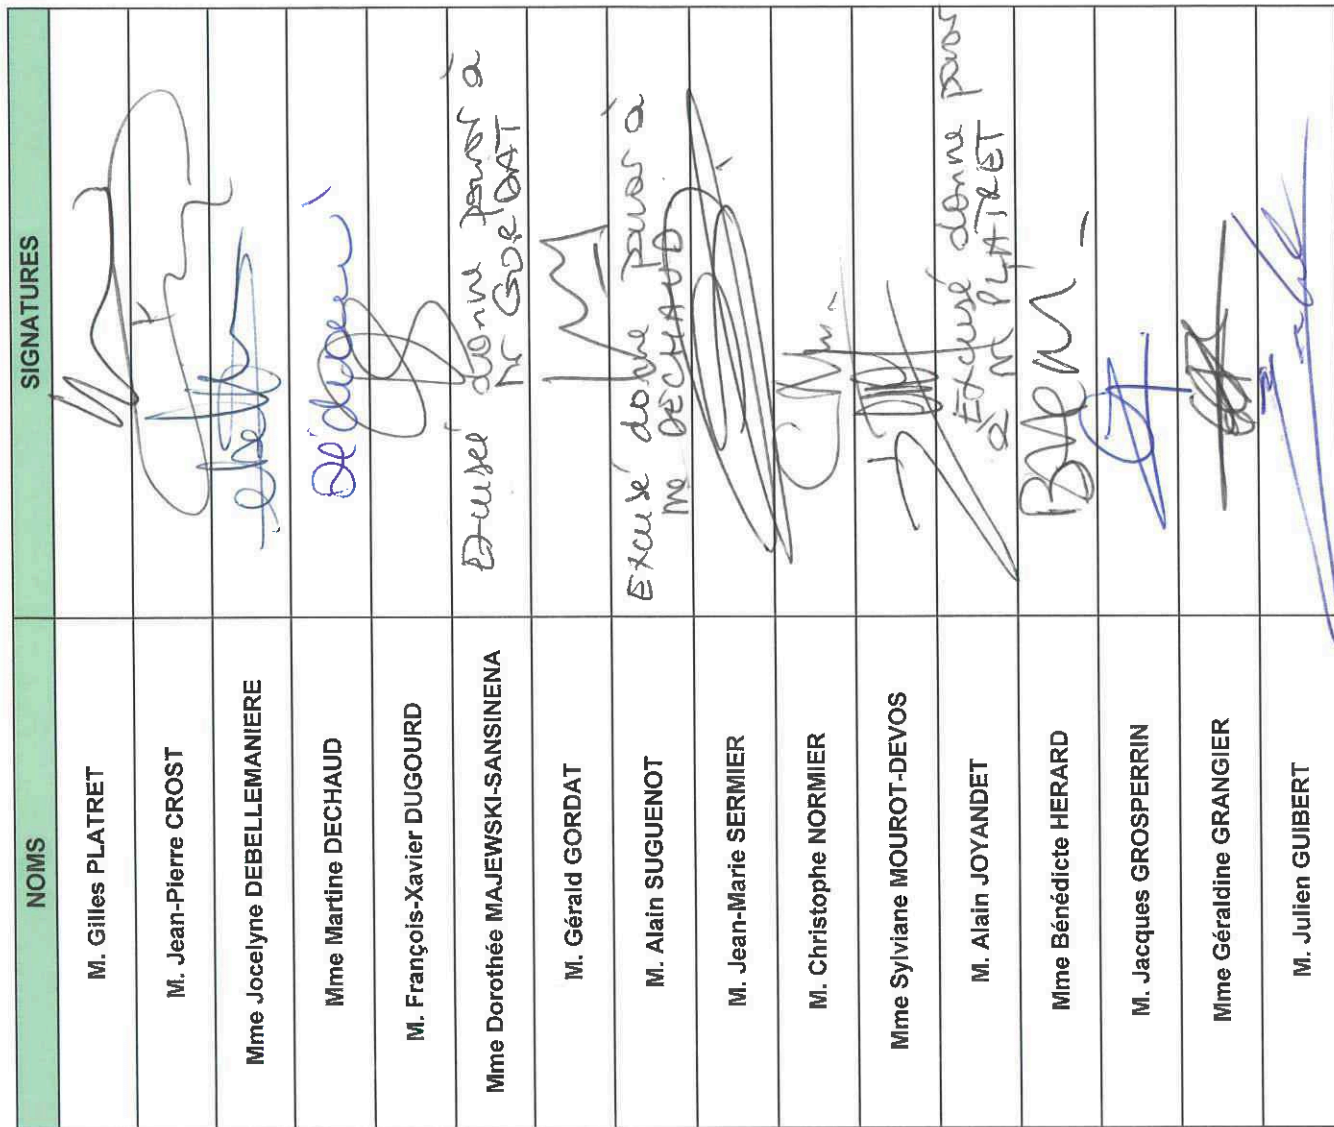 NOMS SIGNATURES
M. Gilles PLATRET
M. Jean-Pierre CROST
Mme Jocelyne DEBELLEMANIERE
Mme Martine DECHAUD
M. François-Xavier DUGOURD
Mme Dorothée MAJEWSKI-SANSINENA Excusée donne pouvoir à
Mr GORDAT
M. Gérald GORDAT
M. Alain SUGUENOT Excusé donne pouvoir à
Me DECHAUD
M. Jean-Marie SERMIER
M. Christophe NORMIER
Mme Sylviane MOUROT-DEVOS
M. Alain JOYANDET Excusé donne pouvoir
à M PLATRET
Mme Bénédicte HERARD
M. Jacques GROSPERRIN
Mme Géraldine GRANGIER
M. Julien GUIBERT